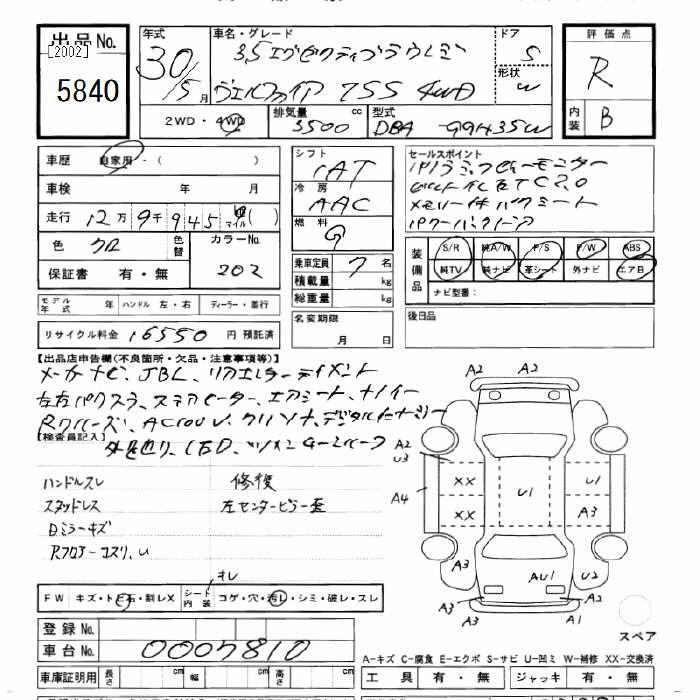 出品No.
[2002]
5840
年式
30/5月
車名・グレード
3.5エグゼクティブラウンジ
ヴェルファイア ZSS 4WD
ドア
5
形状
W
評価点
R
内装
B
2WD・4WD
排気量
3500
cc
型式
DBA-GGH35W
車歴
自家用・( )
車検 年 月
走行 12万9千945 マイル( )
色 クロ
色替
カラーNo. 202
保証書 有・無
シフト
IAT
冷房
AAC
燃料
G
乗車定員 7 名
積載量 kg
総重量 kg
名変期限
月 日
セールスポイント
パノラミックビューモニター
ビルトインETC2.0
メモリー付パワーシート
パワーバックドア
装備品
S/R 純A/W P/S P/W ABS
純TV 純ナビ 革シート 外ナビ エアB
ナビ型番:
後日品
モデル年式 年 ハンドル 左・右 ディーラー・並行
リサイクル料金 16550 円 預託済
【出品店申告欄(不良箇所・欠品・注意事項等)】
メーカーナビ、JBL、リアエンターテイメント
左右パワスラ、ステアヒーター、エアシート、ナノイー
AC100V、クリソナ、デジタルインナミラー
【検査員記入】
LED
ハンドルスレ
スタッドレス
Rフロアーコスリ、U
修復
左センターピラー歪
FW キズ・トビ石・割レX
シート内装
キレ
コゲ・穴・汚レ・シミ・破レ・スレ
登録No.
車台No. 0007810
車庫証明用 長さ cm 幅 cm 高さ cm
A2 A2
A2
U3
A4
XX
XX
U1
U1
A3
A3
AU1
U2
A3
A3
A2
A1
スペア
A-キズ C-腐食 E-エクボ S-サビ U-凹ミ W-補修 XX-交換済
工具 有・無 ジャッキ 有・無